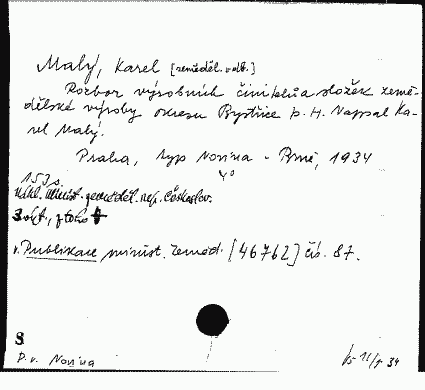 Malý, Karel [zeměděl. odb.]
Rozbor výrobních činitelů a složek země-
dělské výroby okresu Bystřice p. H. Napsal Ka-
rel Malý.
Praha, typ Novina - Brně, 1934
V⁰
153 s.
Nákl. Minist. zeměděl. rep. Českoslov.
Publikace minist. zeměd. [46762] čís. 87.
S
P. v. Novina
34